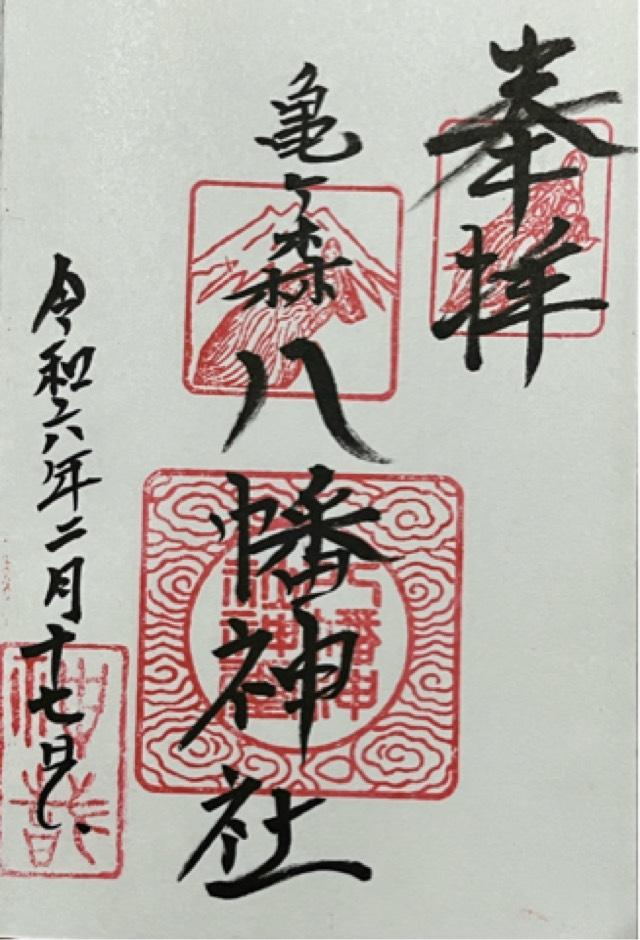 奉拝
亀ヶ森八幡神社
令和六年二月十七日